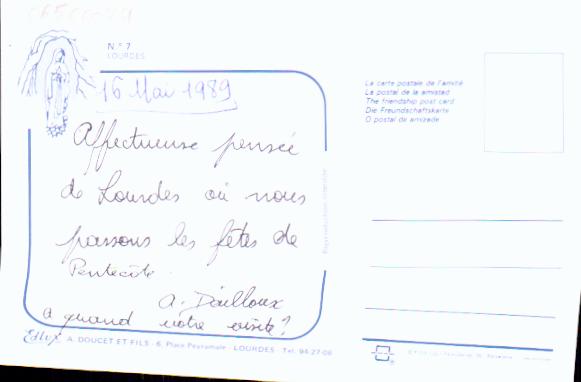 N° 7
LOURDES
16 Mai 1989
Affectueuse pensée
de Lourdes où nous
passons les fêtes de
Pentecôte.
A. Dailloux
a quand votre visite?
A. DOUCET ET FILS - 6, Place Peyramale - LOURDES - Tel. 94-27-08
La carte postale de l'amitié
La postal de la amistad
The friendship post card
Die Freundschaftskarte
O postal de amizade
Reproduction interdite